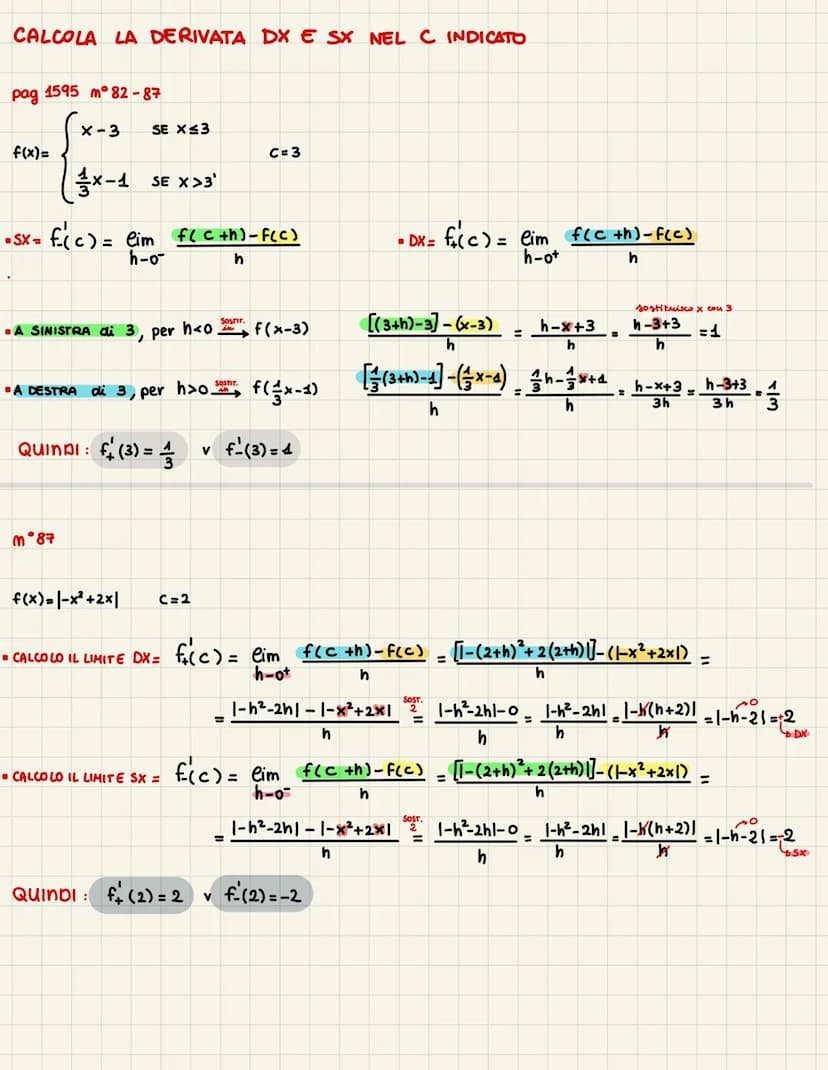 CALCOLA LA DERIVATA DX E SX NEL C INDICATO
pag 1595 n° 82-87
f(x)= { x-3 SE x≤3
1/3x-1 SE x>3' C=3
▪SX= f'₋(c) = lim h→0⁻ f(c+h)-f(c) / h
▪DX= f'₊(c) = lim h→0⁺ f(c+h)-f(c) / h
sostituisco x con 3
▪A SINISTRA di 3, per h<0 sostit. in → f(x-3) [(3+h)-3]-(x-3) / h = h-x+3 / h = h-3+3 / h = 1
▪A DESTRA di 3, per h>0 sostit. in → f(1/3x-1) [1/3(3+h)-1]-(1/3x-1) / h = 1/3h-1/3x+1 / h = h-x+3 / 3h = h-3+3 / 3h = 1/3
QUINDI: f'₊(3) = 1/3 v f'₋(3)=1
n°87
f(x)=|-x²+2x| C=2
▪CALCOLO IL LIMITE DX= f'₊(c) = lim h→0⁺ f(c+h)-f(c) / h = [|-(2+h)²+2(2+h)|]-(|-x²+2x|) / h =
= |-h²-2h|-|-x²+2x| / h SOST. 2 = |-h²-2h|-0 / h = |-h²-2h| / h = |-h(h+2)| / h = |-h-2| = +2 →DX
▪CALCOLO IL LIMITE SX= f'₋(c) = lim h→0⁻ f(c+h)-f(c) / h = [|-(2+h)²+2(2+h)|]-(|-x²+2x|) / h =
= |-h²-2h|-|-x²+2x| / h SOST. 2 = |-h²-2h|-0 / h = |-h²-2h| / h = |-h(h+2)| / h = |-h-2| = -2 →SX
QUINDI: f'₊(2)=2 v f'₋(2)=-2